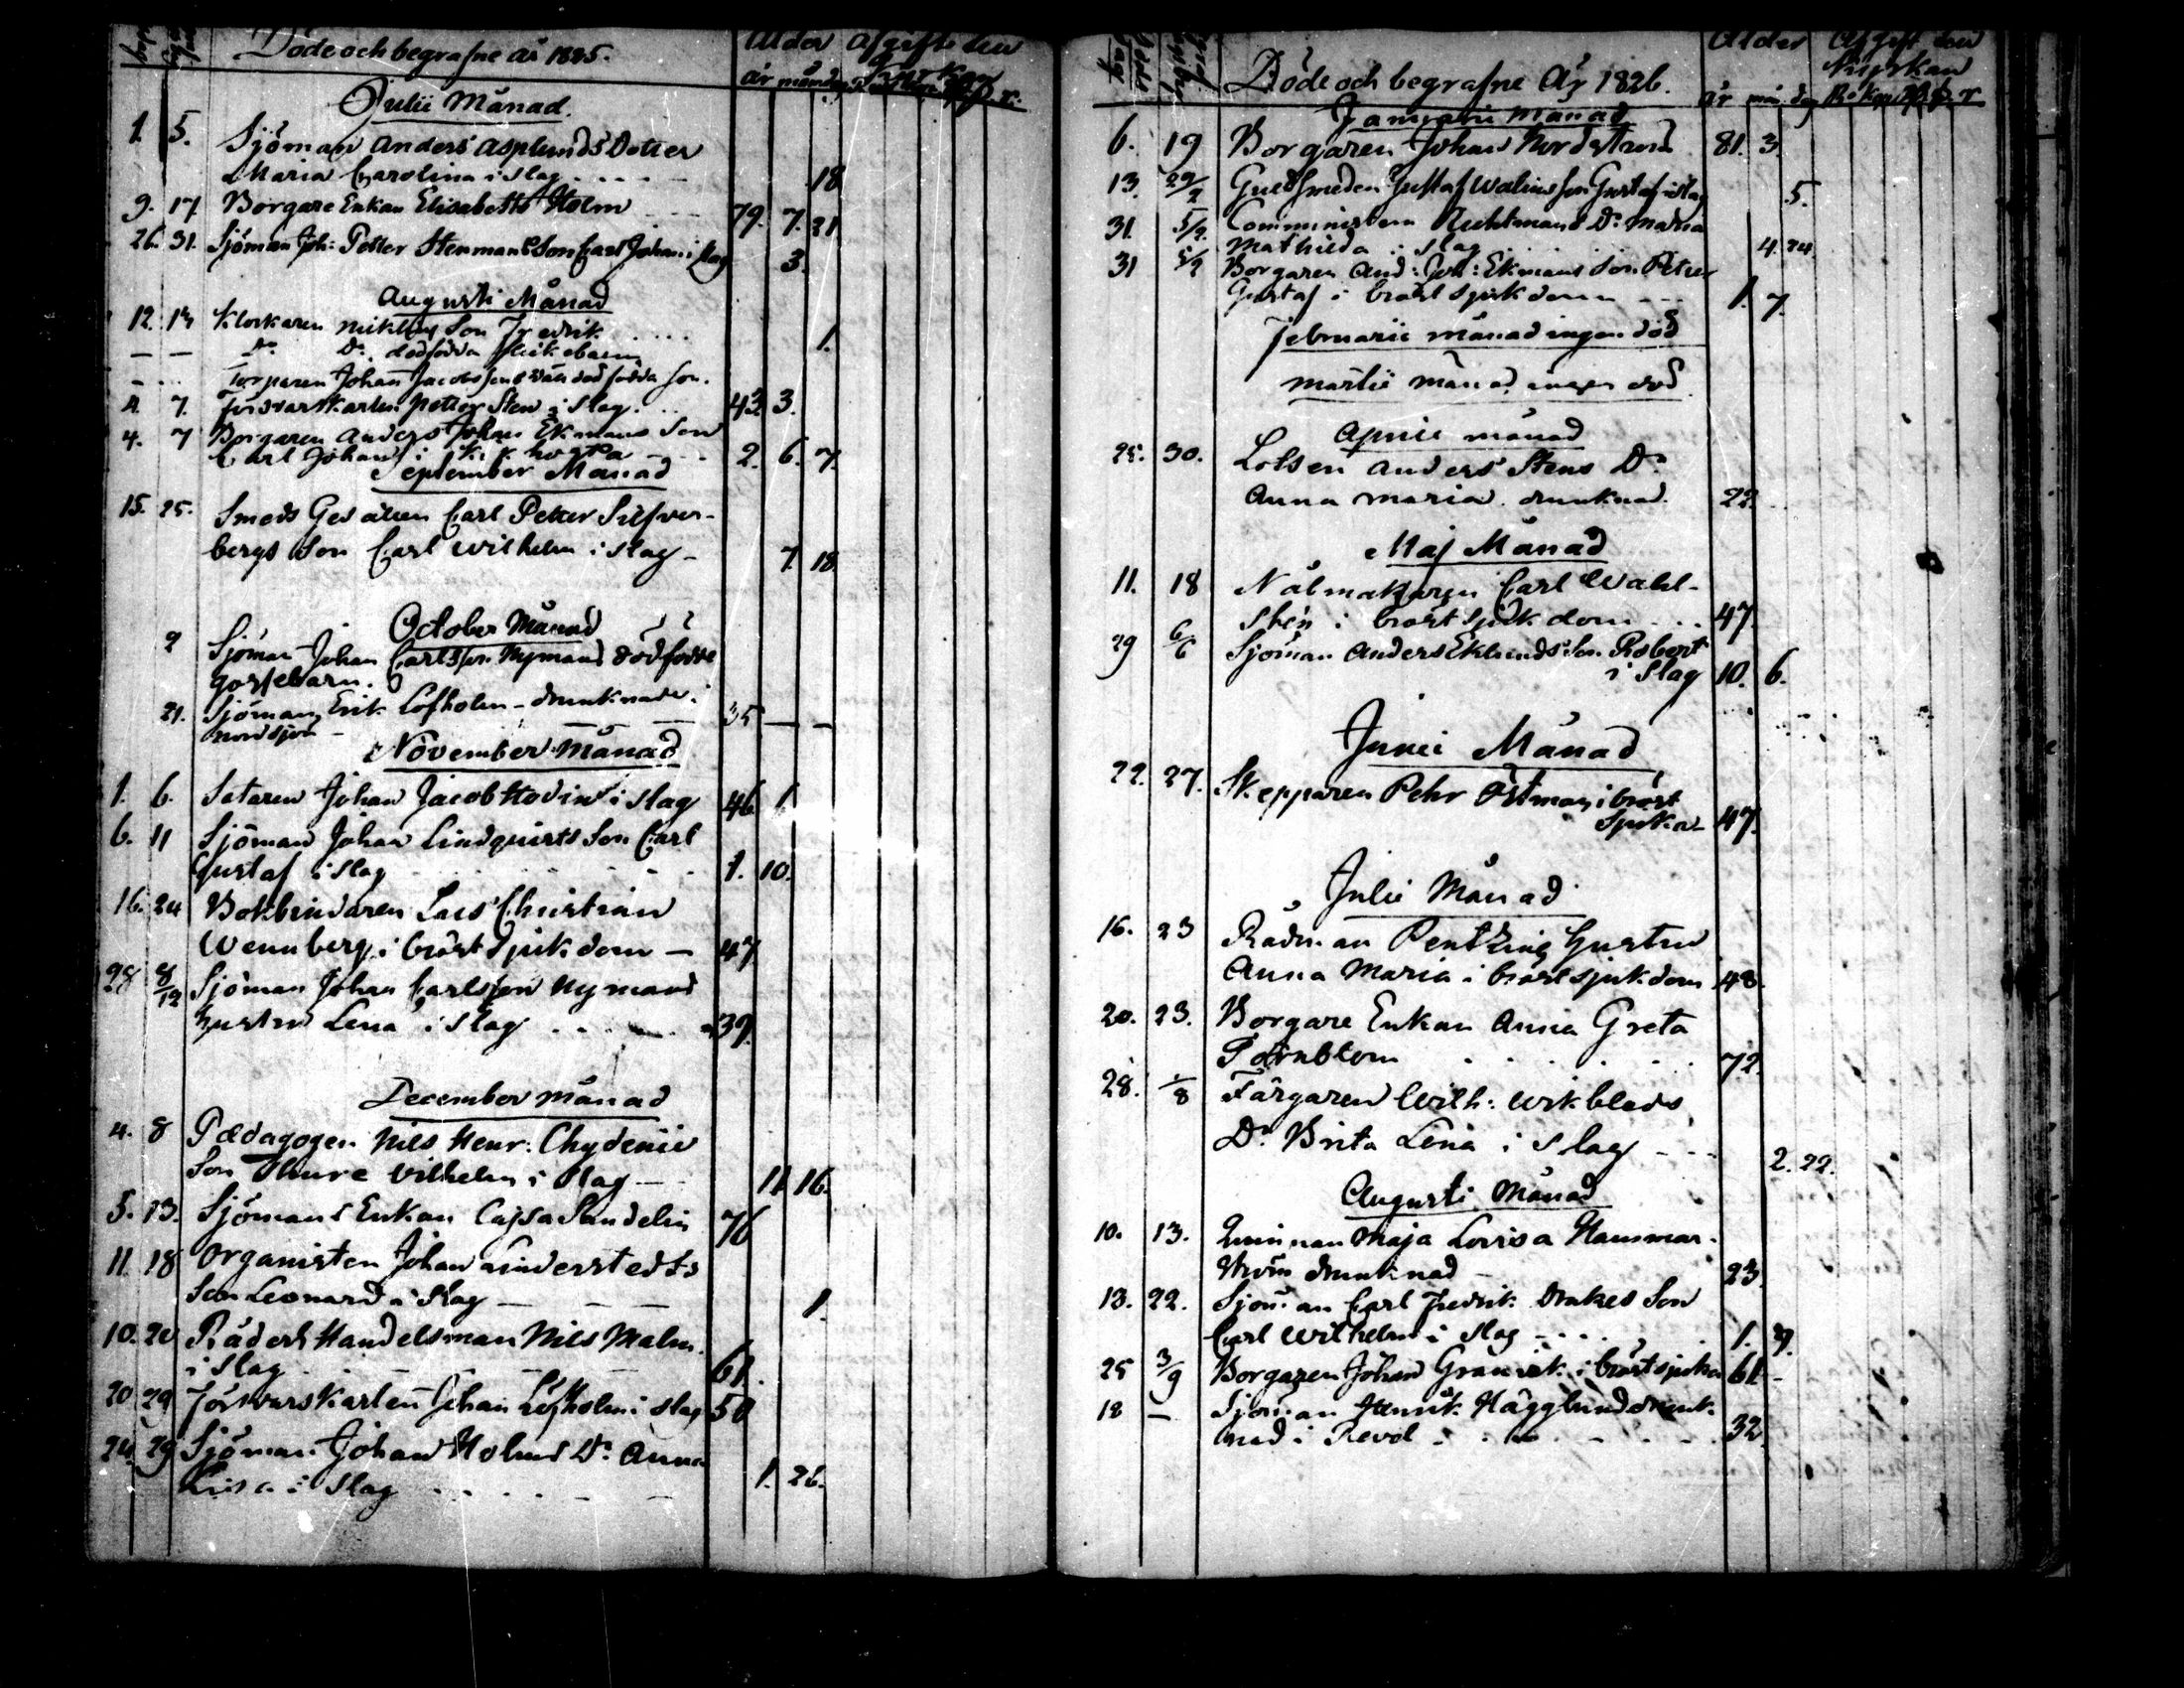 Döde och begrafne år 1825.
Ålder Afgift till
år månd Kyrkan
Julii Månad.
1. 5. Sjöman Anders Asplunds Dotter
Maria Carolina i slag - - - - 18
9. 17 Borgare Enkan Elisabetts Holm 79. 7. 21
26. 31. Sjöman Joh: Petter Stenmans Son Carl Johan i slag 3.
Augusti Månad
12. 14 Klockaren Son Fredrik . . . . 1.
— — Do Do dödfödda flickebarn
- ... Torparen Johan Jacobssons dödfödda son.
4. 7. Försvarskarlen Petter Sten i slag. . . 43 3.
4. 7 Borgaren Anders Johan Ekmans Son
Carl Johan i kikhosta - - - 2. 6. 7.
September Månad
15. 25. Smeds Gesällen Carl Petter Silfver-
bergs Son Carl Wilhelm i slag - 7. 18.
October Månad
2 Sjöman Johan Carlsson Nymans dödfödde
gossebarn.
21. Sjöman Erik Löfholm - drunknade i
nordsjön - 35 — —
November månad
1. 6. Johan Jacob Hodin i slag 46 1.
6. 11 Sjöman Johan Lindquists Son Carl
Gustaf i slag . . . . 1. 10.
16. 24 Bokbindaren Lars Christian
Wennberg i bröstsjukdom — 47
28 8/12 Sjöman Johan Carlsson Nymans
hustru Lena i slag . . . . 39.
December månad
4. 8 Pædagogen Nils Henr: Chydenii
Son Thure Vilhelm i slag — 11 16.
5. 13. Sjömans Enkan Cajsa Sandelin 76
11. 18 Organisten Johan Linderstedts
Son Leonard i slag — — — 1.
10. 20 Råd och Handelsman Nils Malm
i slag 61.
20 29 Försvarskarlen Johan Löfholm i slag 50
24. 29 Sjöman Johan Holms Dr Anna
Lisa i slag . . . . 1. 26.
Döde och begrafne År 1826.
Ålder Afgift till
Kyrkan
år mån. dag
Januarii Månad
6. 19 Borgaren Johan Nordström 81. 3.
13. 29/2 Guldsmeden Gustaf Walins Son Gustaf i slag 5.
31. 5/2 Comministern Dr Maria
Mathilda i slag . . . 4. 24
31 5/2 Borgaren And: Joh: Ekmans Son Petter
Gustaf i bröstsjukdom - - - 1. 7.
Februarii månad ingen död
Martii månad ingen död.
Aprill månad
25. 30. Lotsen Anders Stens Dr
Anna Maria. drunknad. 22.
Maj Månad
11. 18 Nålmakaren Carl Wahl-
stén i bröstsjukdom . . . 47.
29 6/6 Sjöman Anders Eklunds Son Robert
i Slag 10. 6.
Junii Månad
22. 27. Skepparen Pehr Östman i bröst
sjuka 47.
Julii Månad
16. 23 Rådman Pentzins hustru
Anna Maria i bröstsjukdom 48.
20. 23. Borgare Enkan Anna Greta
Törnblom . . . . . 72.
28. 1/8 Färgaren Wilh: Wikblads
Dr Brita Lena i slag - - - 2. 22.
Augusti Månad
10. 13. Quinnan Maja Lovisa Hammar-
ström drunknad - 23.
13. 22. Sjöman Carl Fredrik Drakes Son
Carl Wilhelm i slag - . . . 1. 9.
25 3/9 Borgaren Johan Granvik i bröstsjuka 61 -
18 — Sjöman Henrik Hägglund drunk-
nad i Reval - . . - 32.